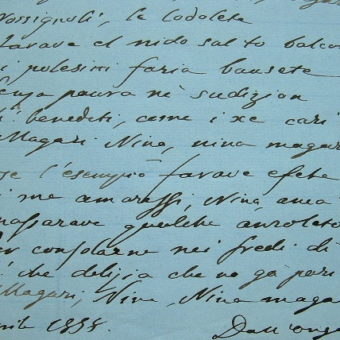 Rossignoli, le lodolete
farave el nido sul to balcon
i polesini faria bausete
senza paura nè sudizion
benedeti, come i xe cari
Magari Nina, nina magari
se l'esempio farave efeto
me amarassi, Nina, anca
qualche anzoleto
consolarne nei fredi dì
che delizia che no ga pari
Magari, Nina, Nina maga
1858. Dall'onga